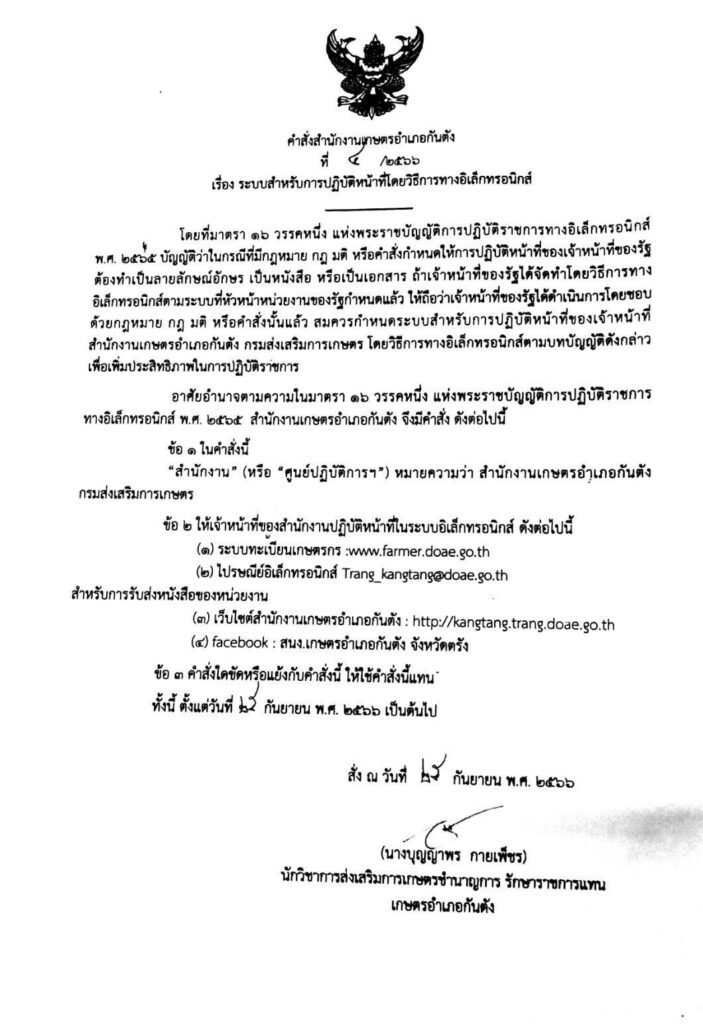 คำสั่งสำนักงานเกษตรอำเภอกันตัง
ที่ /๒๕๖๖
เรื่อง ระบบสำหรับการปฏิบัติหน้าที่โดยวิธีการทางอิเล็กทรอนิกส์
โดยที่มาตรา ๑๖ วรรคหนึ่ง แห่งพระราชบัญญัติการปฏิบัติราชการทางอิเล็กทรอนิกส์
พ.ศ. ๒๕๖๕ บัญญัติว่าในกรณีที่มีกฎหมาย กฎ มติ หรือคำสั่งกำหนดให้การปฏิบัติหน้าที่ของเจ้าหน้าที่ของรัฐ
ต้องทำเป็นลายลักษณ์อักษร เป็นหนังสือ หรือเป็นเอกสาร ถ้าเจ้าหน้าที่ของรัฐได้จัดทำโดยวิธีการทาง
อิเล็กทรอนิกส์ตามระบบที่หัวหน้าหน่วยงานของรัฐกำหนดแล้ว ให้ถือว่าเจ้าหน้าที่ของรัฐได้ดำเนินการโดยชอบ
ด้วยกฎหมาย กฎ มติ หรือคำสั่งนั้นแล้ว สมควรกำหนดระบบสำหรับการปฏิบัติหน้าที่ของเจ้าหน้าที่
สำนักงานเกษตรอำเภอกันตัง กรมส่งเสริมการเกษตร โดยวิธีการทางอิเล็กทรอนิกส์ตามบทบัญญัติดังกล่าว
เพื่อเพิ่มประสิทธิภาพในการปฏิบัติราชการ
อาศัยอำนาจตามความในมาตรา ๑๖ วรรคหนึ่ง แห่งพระราชบัญญัติการปฏิบัติราชการ
ทางอิเล็กทรอนิกส์ พ.ศ. ๒๕๖๕ สำนักงานเกษตรอำเภอกันตัง จึงมีคำสั่ง ดังต่อไปนี้
ข้อ ๑ ในคำสั่งนี้
"สำนักงาน" (หรือ "ศูนย์ปฏิบัติการฯ") หมายความว่า สำนักงานเกษตรอำเภอกันตัง
กรมส่งเสริมการเกษตร
ข้อ ๒ ให้เจ้าหน้าที่ของสำนักงานปฏิบัติหน้าที่ในระบบอิเล็กทรอนิกส์ ดังต่อไปนี้
(๑) ระบบทะเบียนเกษตรกร :www.farmer.doae.go.th
(๒) ไปรษณีย์อิเล็กทรอนิกส์ Trang_kangtang@doae.go.th
สำหรับการรับส่งหนังสือของหน่วยงาน
(๓) เว็บไซต์สำนักงานเกษตรอำเภอกันตัง : http://kangtang.trang.doae.go.th
(๔) facebook : สนง.เกษตรอำเภอกันตัง จังหวัดตรัง
ข้อ ๓ คำสั่งใดขัดหรือแย้งกับคำสั่งนี้ ให้ใช้คำสั่งนี้แทน
ทั้งนี้ ตั้งแต่วันที่ กันยายน พ.ศ. ๒๕๖๖ เป็นต้นไป
สั่ง ณ วันที่ กันยายน พ.ศ. ๒๕๖๖
(นางบุญญาพร กายเพ็ชร)
นักวิชาการส่งเสริมการเกษตรชำนาญการ รักษาราชการแทน
เกษตรอำเภอกันตัง